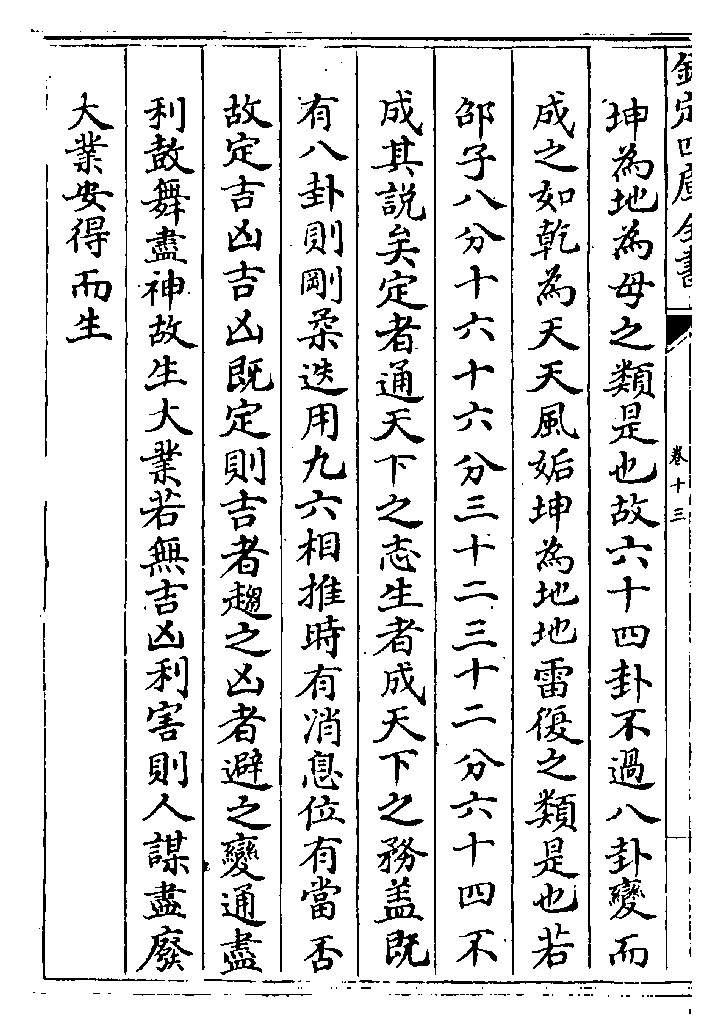 欽定四庫全書
卷十三
坤為地為母之類是也故六十四卦不過八卦變而
成之如乾為天天風姤坤為地地雷復之類是也若
邵子八分十六十六分三十二三十二分六十四不
成其說矣定者通天下之志生者成天下之務盖既
有八卦則剛柔迭用九六相推時有消息位有當否
故定吉凶吉凶既定則吉者趨之凶者避之變通盡
利鼓舞盡神故生大業若無吉凶利害則人謀盡廢
大業安得而生